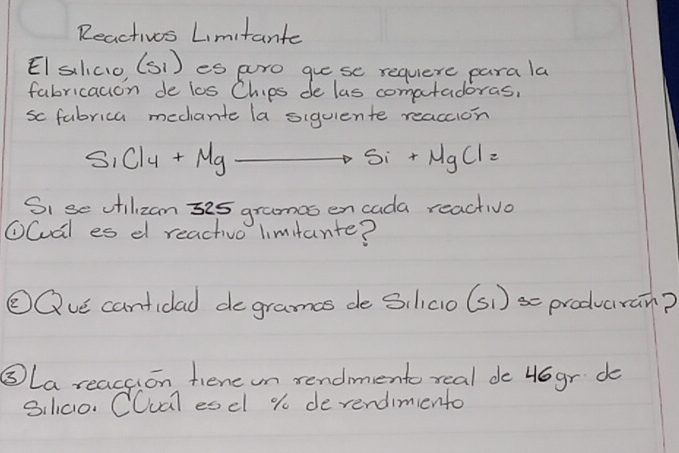 Reactivos Limitante
El silicio, (Si) es puro que se requiere para la
fabricación de los Chips de las computadoras,
se fabrica mediante la siguiente reacción
SiCl4 + Mg → Si + MgCl2
Si se utilizan 325 gramos en cada reactivo
① Cuál es el reactivo limitante?
② Qué cantidad de gramos de Silicio (si) se producirán?
③ La reacción tiene un rendimiento real de 46 gr. de
Silicio. CCuál es el % de rendimiento